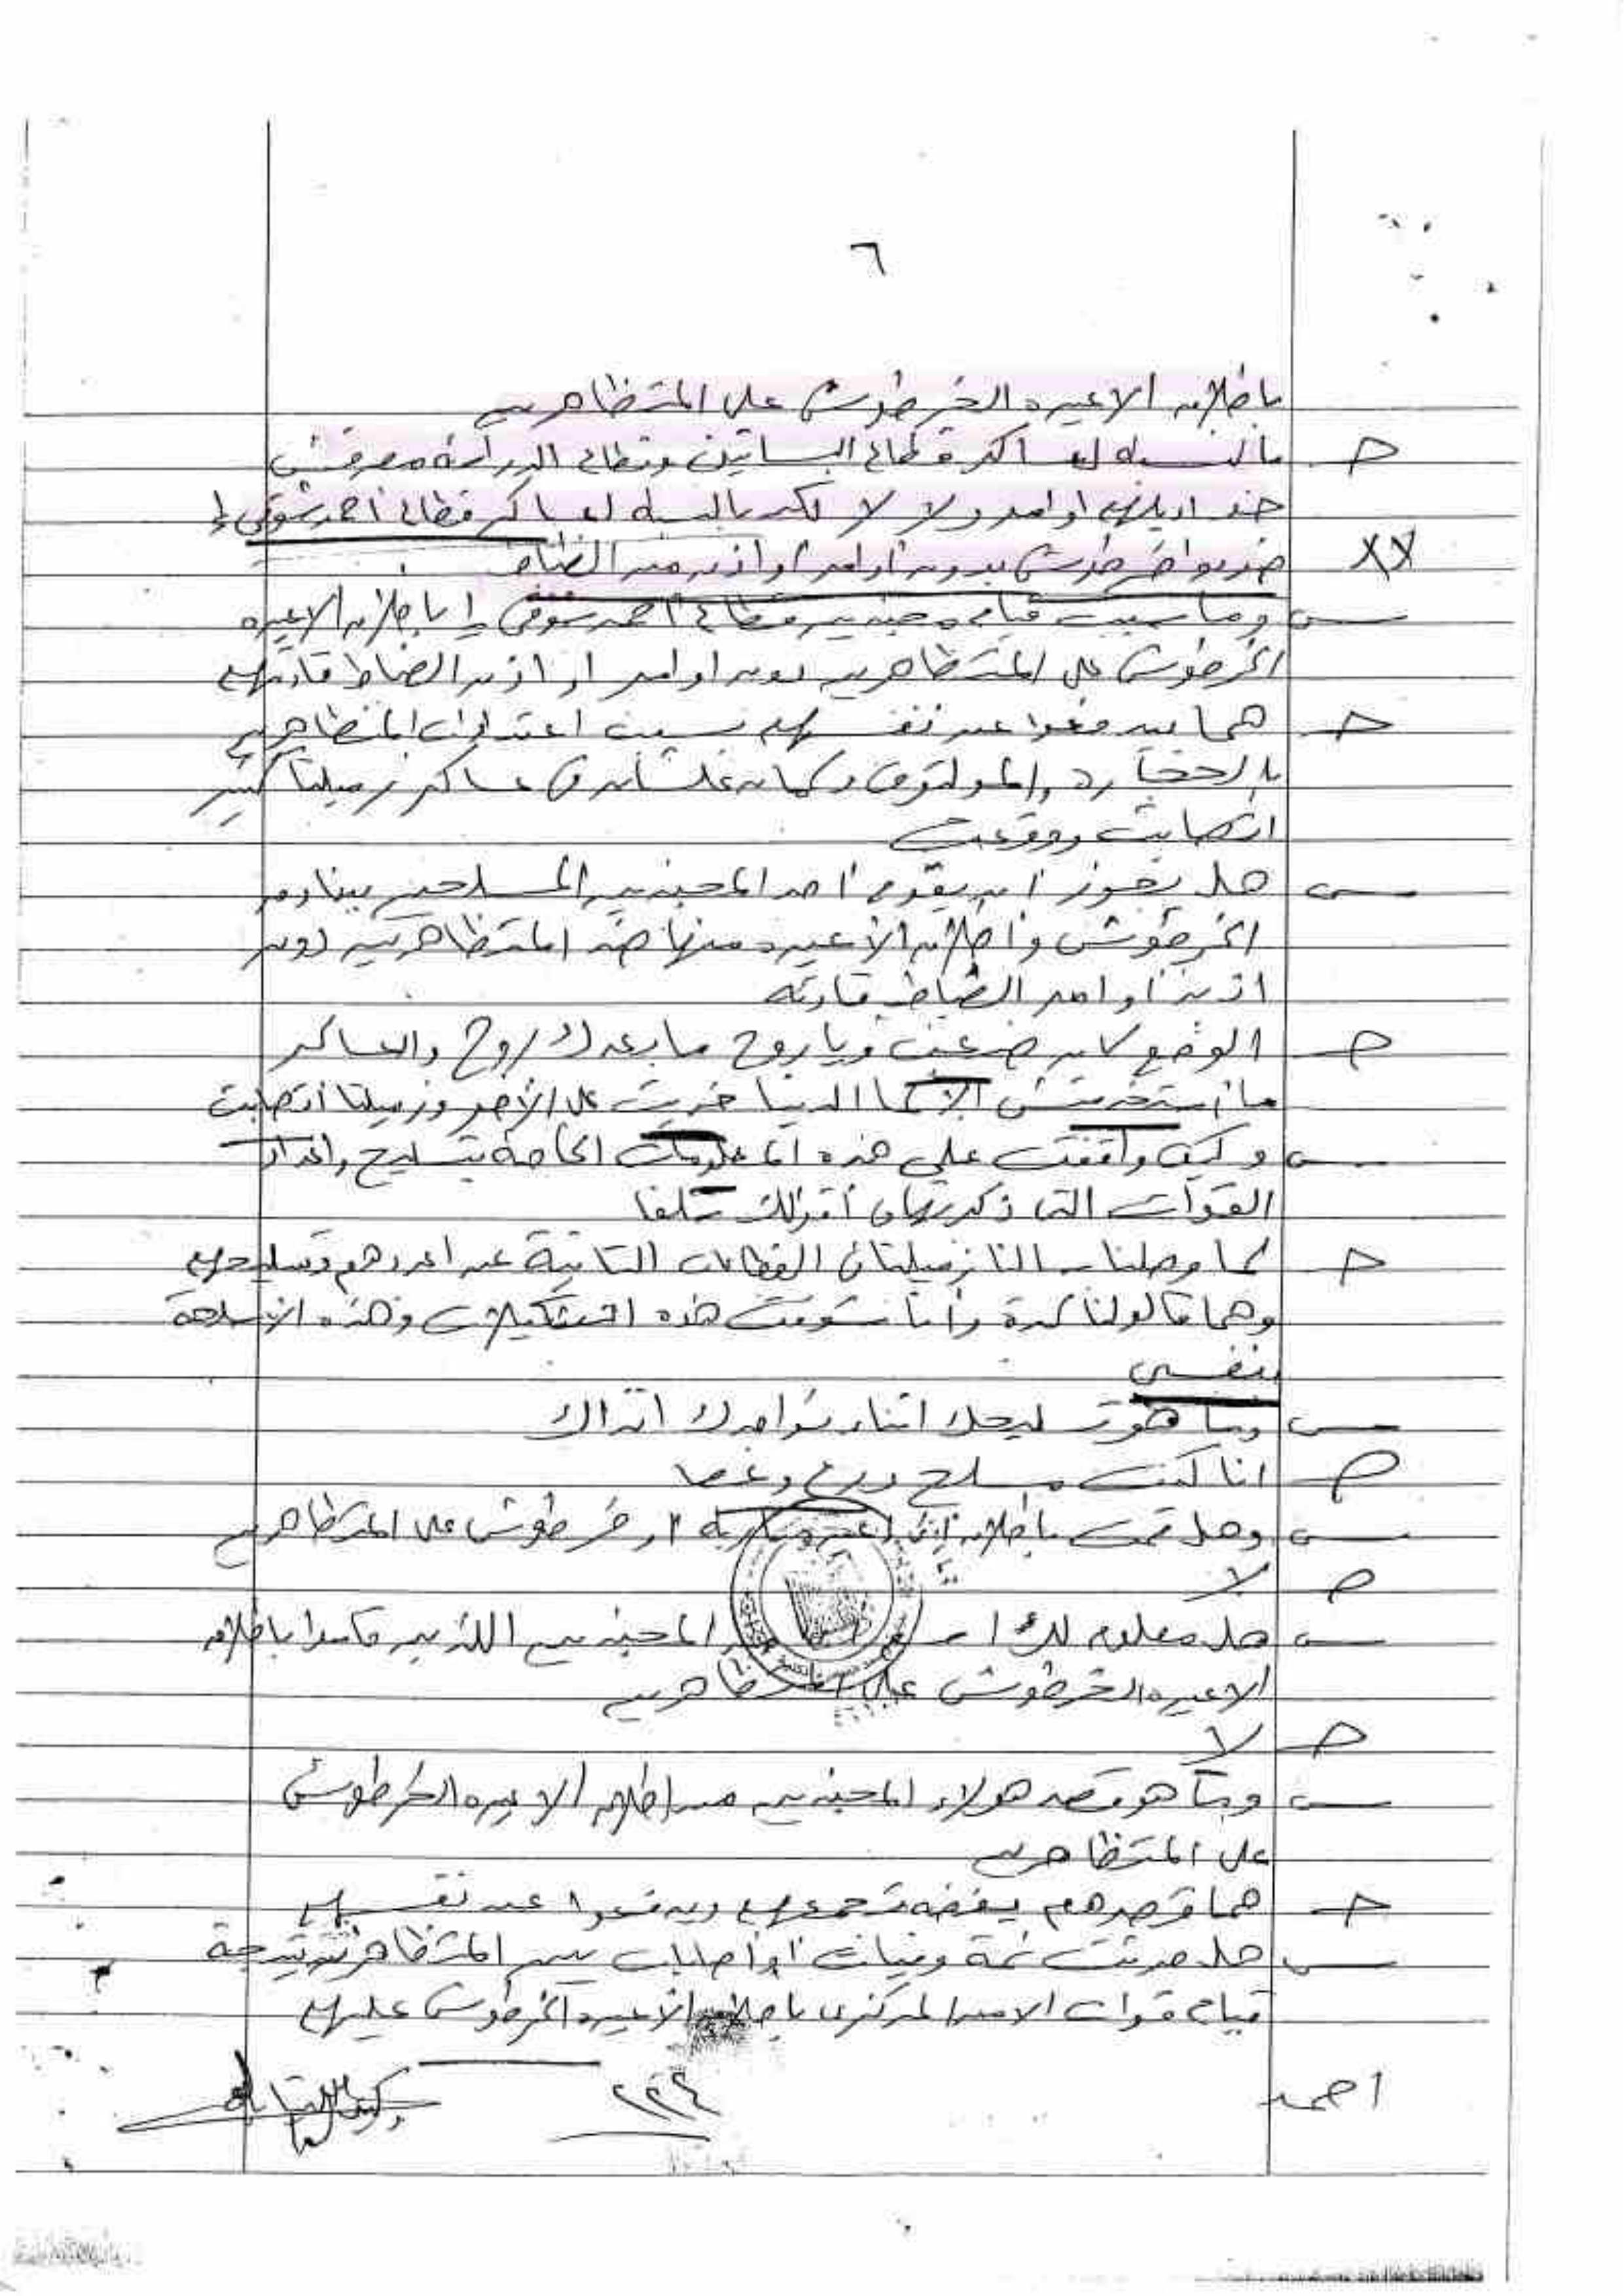 ٦
باطلاق الاعيره الخرطوش على المتظاهرين
ج بالنسبه لعساكر قطاع البساتين وقطاع الدراسة معرفش
خدوا اوامر ولا لا لكن بالنسبه لعساكر قطاع احمد شوقي
XX ضربوا خرطوش بدون اوامر او اذن من الضباط
س وما سبب قيام مجندين قطاع أحمد شوقي باطلاق الاعيره
الخرطوش على المتظاهرين دون اوامر او اذن الضباط قادتهم
ج هما بيدفعوا عن نفسهم بسبب اعتداءات المتظاهرين
بالحجاره والمولوتوف وكمان علشان في عساكر زميلنا كتير
اتصابت ووقعت
س هل يجوز أن يقوم أحد المجندين المسلحين ببنادق
الخرطوش وأطلاق الأعيره منها ضد المتظاهرين دون
اذن أو امر الضباط قادته
ج الوضع كان صعب ويا روح ما بعدك روح والعساكر
ما استخدمتش الا لما الدنيا خربت على الأخر وزميلنا اتصابت
س وكيف وقفت على هذه المعلومات الخاصة بتسليح واعداد
القوات التى ذكرتها فى أقوالك سلفا
ج لما وصلنا سالنا زميلنا فى القطاعات التانية عن اعدادهم وتسليحهم
وهما قالولنا كدة وأنا شوفت هذه التشكيلات وهذه الأسلحة
بنفسى
س وما هو تسليحك اثناء تواجدك انذاك
ج انا كنت مسلح درع وعصا
س وهل قمت باطلاق أى اعيره ناريه او خرطوش على المتظاهرين
ج لا
س هل معلوم لك المجندين اللذين قاموا باطلاق
الاعيره الخرطوش على المتظاهرين
ج لا
س وما هو قصد هولاء المجندين من اطلاق الاعيره الخرطوش
على المتظاهرين
ج هما قصدهم يفضه تجمعهم ويدفعوا عن نفسهم
س هل حدثت ثمة وفيات أو أصابات بين المتظاهرين نتيجة
قيام قوات الامن المركزى باطلاق الأعيره الخرطوش عليهم
احمد
وكيل النيابه